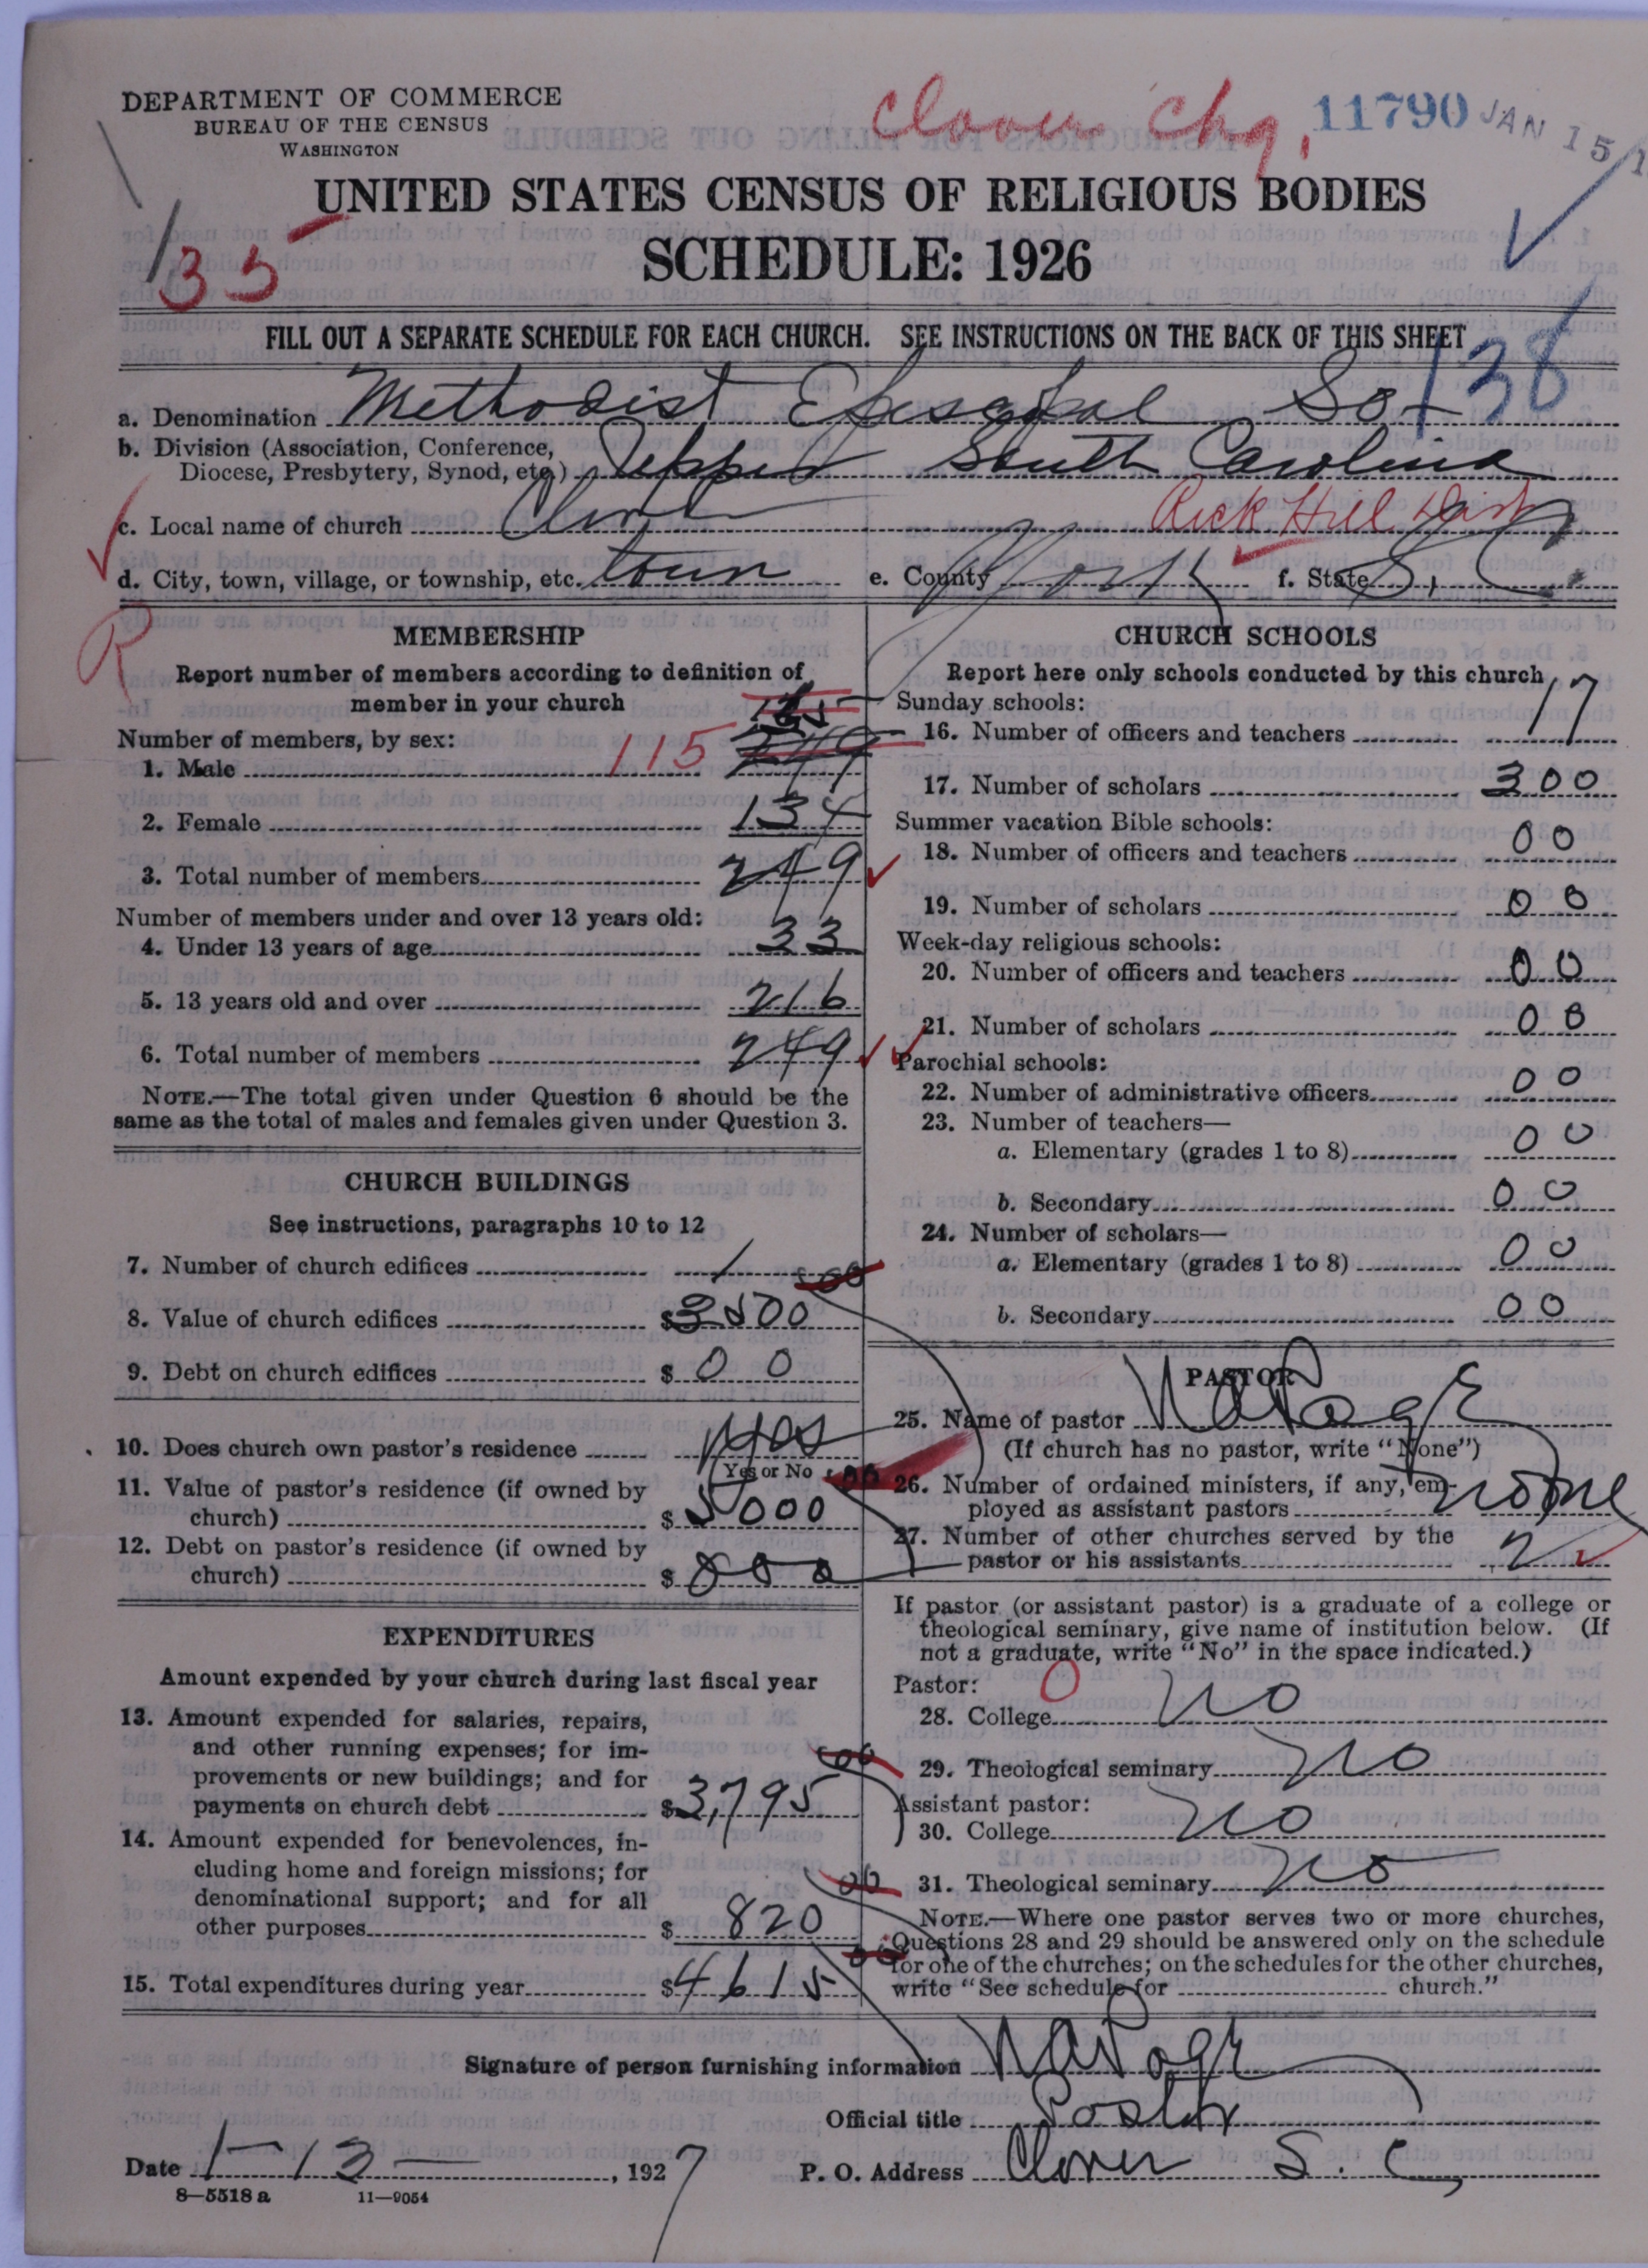 DEPARTMENT OF COMMERCE
BUREAU OF THE CENSUS
WASHINGTON
Clover Chg.
11790 JAN 15
UNITED STATES CENSUS OF RELIGIOUS BODIES
SCHEDULE: 1926
135
FILL OUT A SEPARATE SCHEDULE FOR EACH CHURCH. SEE INSTRUCTIONS ON THE BACK OF THIS SHEET
138
a. Denomination Methodist Episcopal So
b. Division (Association, Conference,
Diocese, Presbytery, Synod, etc.) Upper South Carolina
Rock Hill Dist
c. Local name of church Clover
d. City, town, village, or township, etc. town e. County York f. State S. C.
R
MEMBERSHIP
Report number of members according to definition of
member in your church
Number of members, by sex:
1. Male 115 249
2. Female 134
3. Total number of members 249
Number of members under and over 13 years old:
4. Under 13 years of age 33
5. 13 years old and over 216
6. Total number of members 249
NOTE.—The total given under Question 6 should be the
same as the total of males and females given under Question 3.
CHURCH BUILDINGS
See instructions, paragraphs 10 to 12
7. Number of church edifices 1
8. Value of church edifices $3500 00
9. Debt on church edifices $ 0 0
10. Does church own pastor's residence Yes
Yes or No
11. Value of pastor's residence (if owned by
church) $ 5000 00
12. Debt on pastor's residence (if owned by
church) $ 800
EXPENDITURES
Amount expended by your church during last fiscal year
13. Amount expended for salaries, repairs,
and other running expenses; for im-
provements or new buildings; and for
payments on church debt $3,795 00
14. Amount expended for benevolences, in-
cluding home and foreign missions; for
denominational support; and for all
other purposes $ 820 00
15. Total expenditures during year $4615 00
CHURCH SCHOOLS
Report here only schools conducted by this church
Sunday schools:
16. Number of officers and teachers 17
17. Number of scholars 300
Summer vacation Bible schools:
18. Number of officers and teachers 00
19. Number of scholars 00
Week-day religious schools:
20. Number of officers and teachers 00
21. Number of scholars 00
Parochial schools:
22. Number of administrative officers 00
23. Number of teachers—
a. Elementary (grades 1 to 8) 00
b. Secondary 00
24. Number of scholars—
a. Elementary (grades 1 to 8) 00
b. Secondary 00
PASTOR
25. Name of pastor Page
(If church has no pastor, write "None")
26. Number of ordained ministers, if any, em-
ployed as assistant pastors none
27. Number of other churches served by the
pastor or his assistants 2
If pastor (or assistant pastor) is a graduate of a college or
theological seminary, give name of institution below. (If
not a graduate, write "No" in the space indicated.)
Pastor: 0
28. College no
29. Theological seminary no
Assistant pastor:
30. College no
31. Theological seminary no
NOTE.—Where one pastor serves two or more churches,
Questions 28 and 29 should be answered only on the schedule
for one of the churches; on the schedules for the other churches,
write "See schedule for church."
Signature of person furnishing information Page
Official title Pastor
Date 1-13, 1927 P. O. Address Clover S. C,
8—5518 a 11—9054